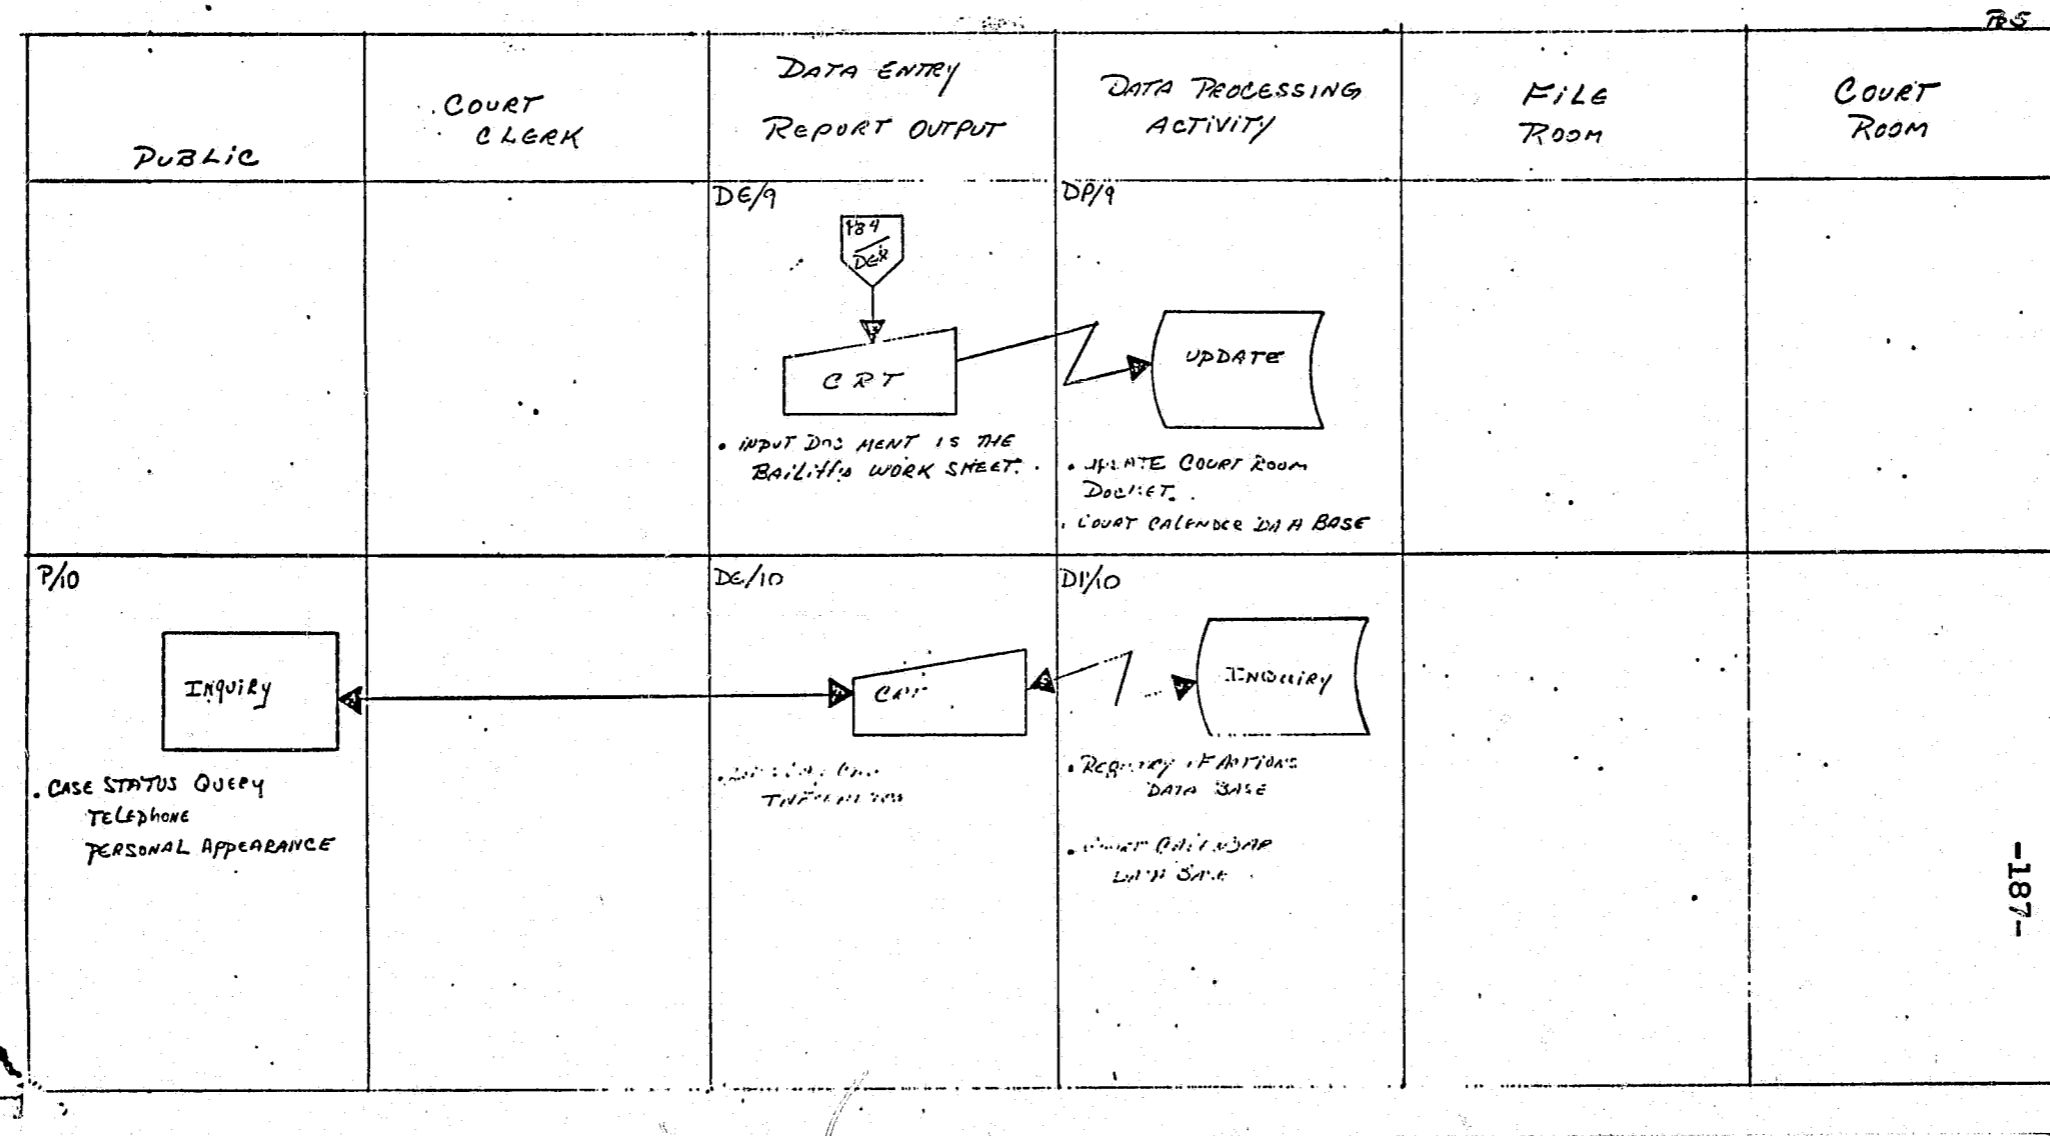 PB5
PUBLIC
COURT
CLERK
DATA ENTRY
REPORT OUTPUT
DATA PROCESSING
ACTIVITY
FILE
ROOM
COURT
ROOM
DE/9
PB4
DE8
CRT
• INPUT DOC MENT IS THE
BAILIFF'S WORK SHEET.
DP/9
UPDATE
• UPDATE COURT ROOM
DOCKET.
• COURT CALENDER DATA BASE
P/10
INQUIRY
• CASE STATUS QUERY
TELEPHONE
PERSONAL APPEARANCE
DE/10
CRT
DP/10
INQUIRY
• REGISTRY OF ACTIONS
DATA BASE
• COURT CALENDAR
DATA BASE
-187-